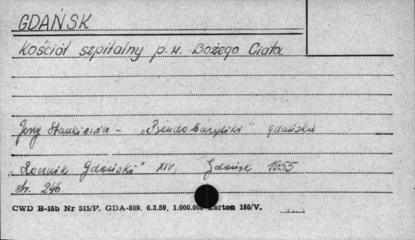 GDAŃSK
Kościół szpitalny p.w. Bożego Ciała
Jerzy Stankiewicz - „Pseudobazyliki" gdańskie
„Rocznik Gdański" XIV, Gdańsk 1955
str. 246
CWD B-15b Nr 515/P. GDA-809. 6.3.59, 1.000.000 karton 180/V.